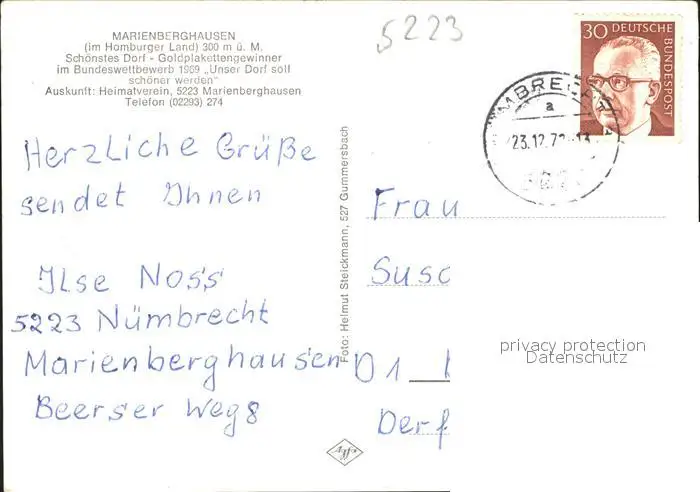 MARIENBERGHAUSEN
(im Homburger Land) 300 m ü. M.
Schönstes Dorf - Goldplakettengewinner
im Bundeswettbewerb 1969 „Unser Dorf soll
schöner werden“
Auskunft: Heimatverein, 5223 Marienberghausen
Telefon (02293) 274
5223
30 DEUTSCHE
BUNDESPOST
a
23.12.72-13
Herzliche Grüße
sendet Ihnen
Ilse Noss
5223 Nümbrecht
Marienberghausen
Beerser Weg 8
Foto: Helmut Steickmann, 527 Gummersbach
Frau
D1
privacy protection
Datenschutz